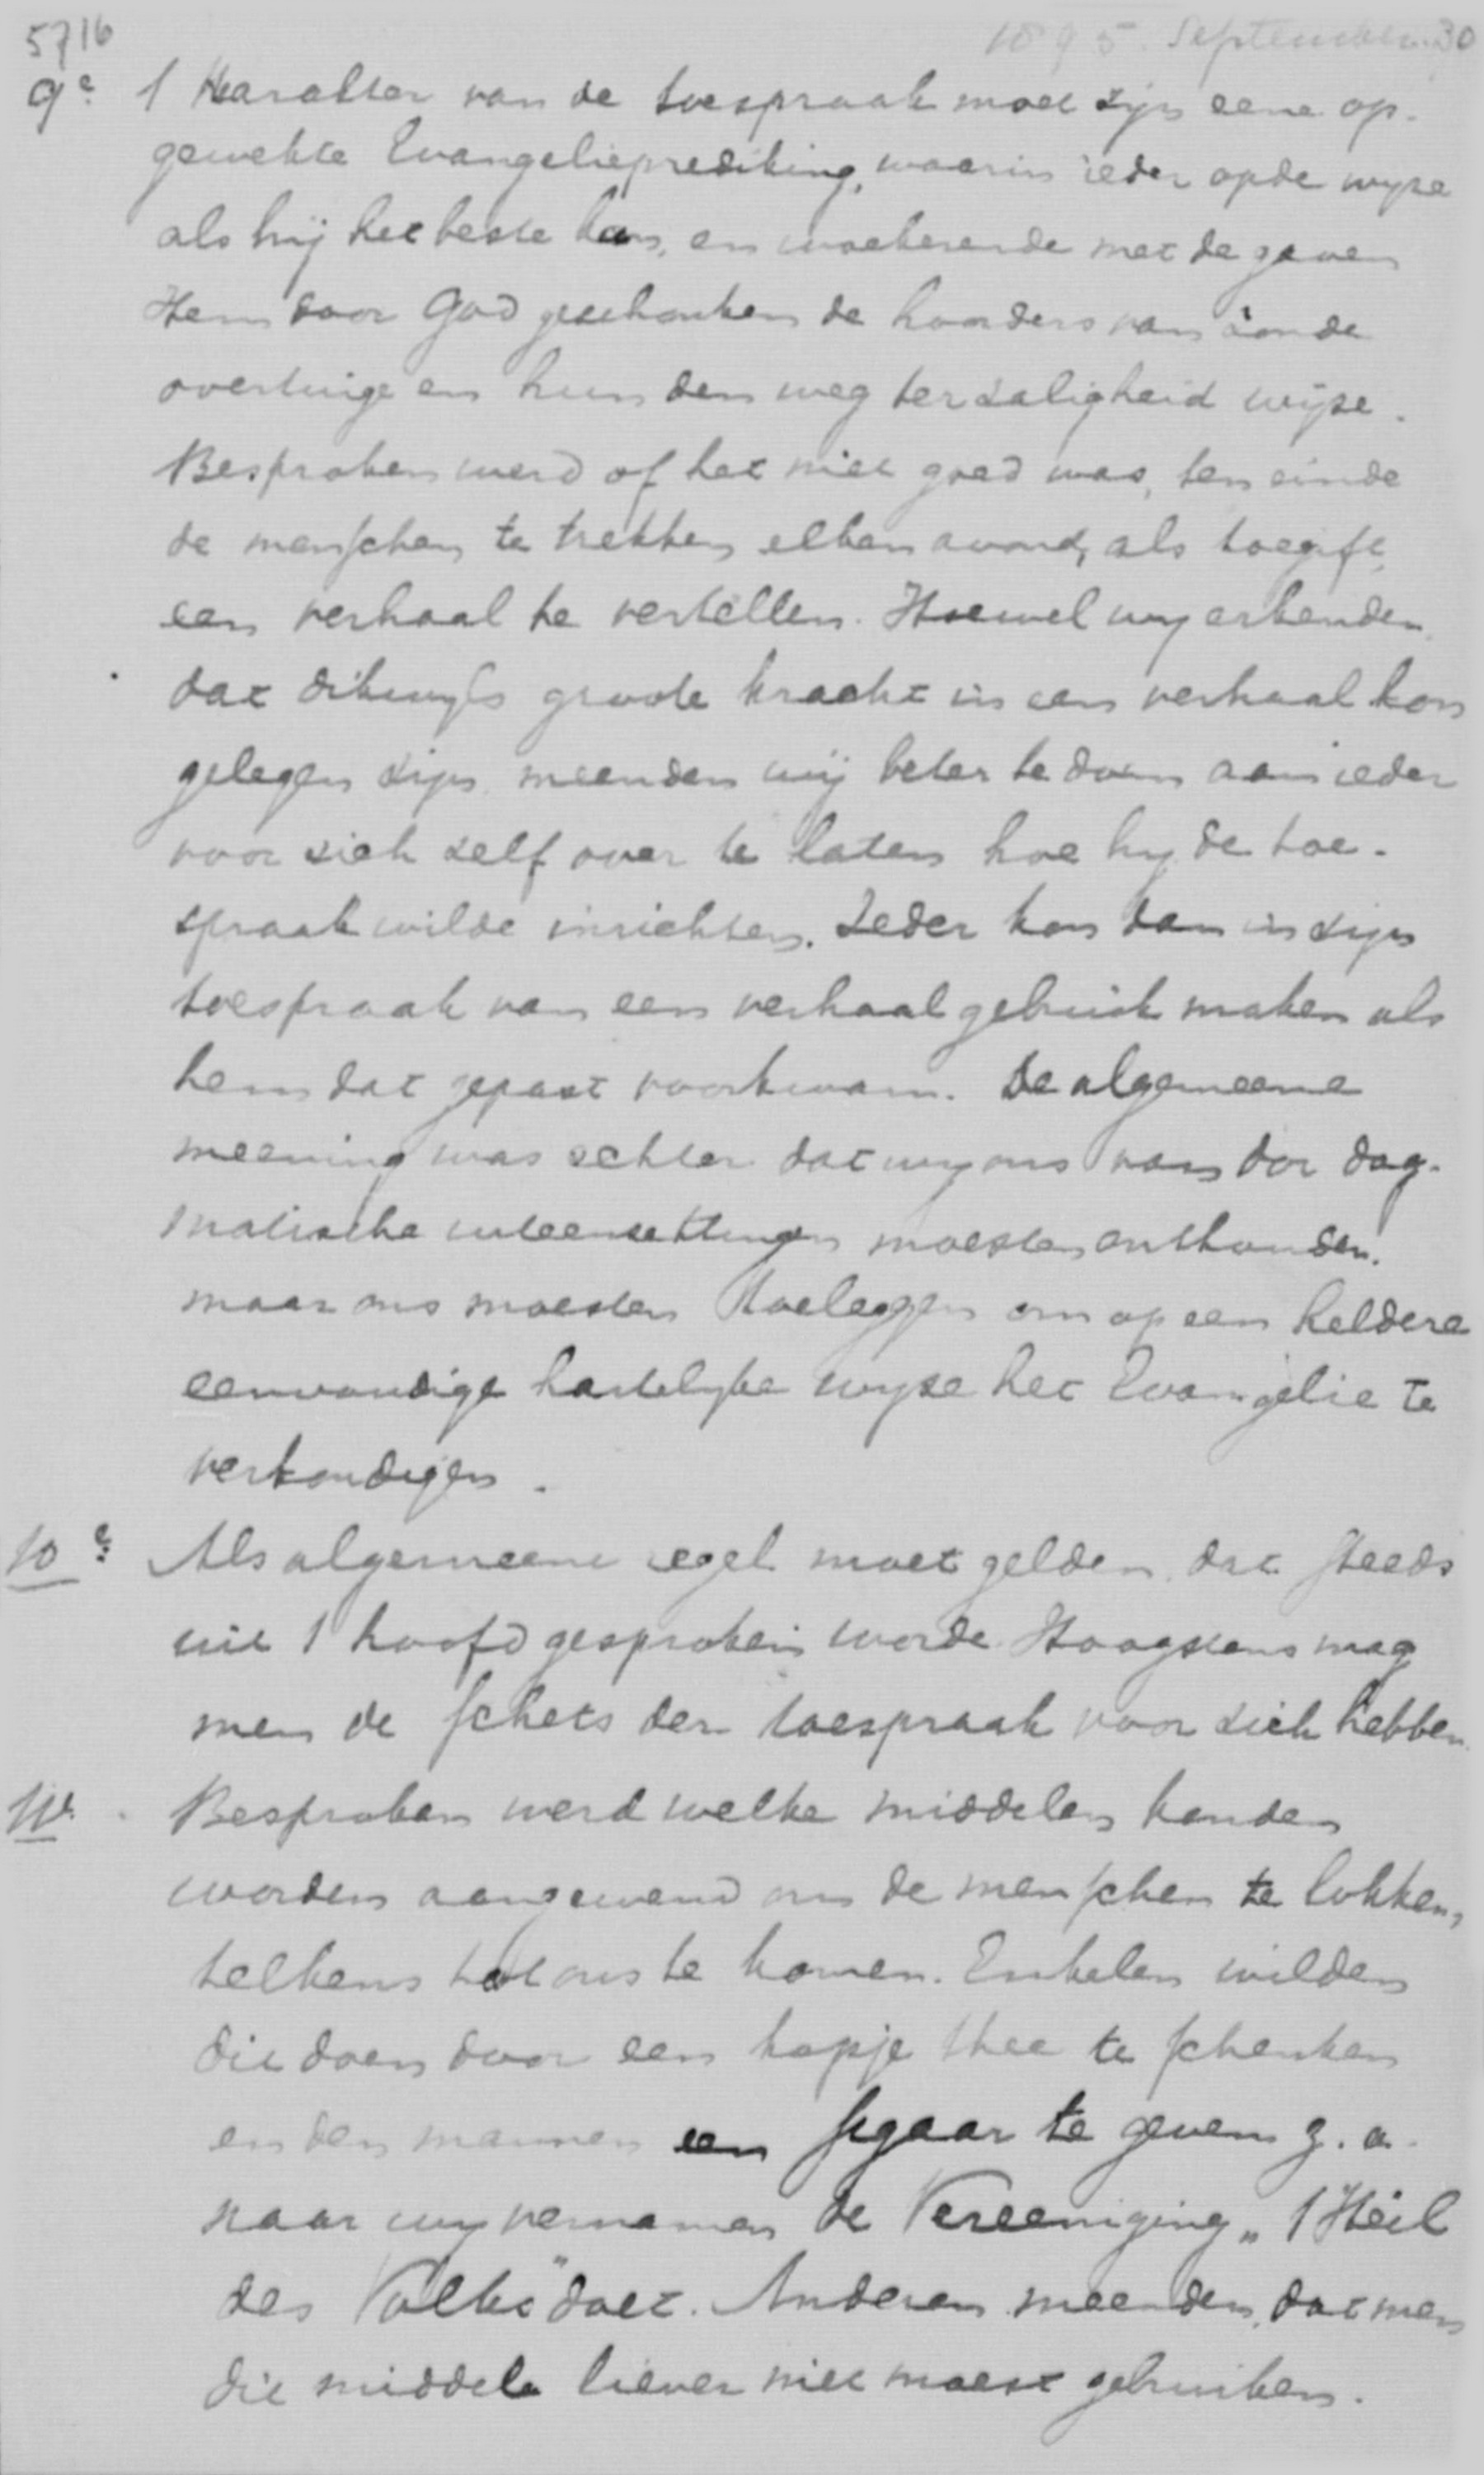 5716
1895. September 30
9e. 't Karakter van de toespraak moet zijn eene op-
gewekte Evangelieprediking, waarin ieder op de wijze
als hij het beste kan, en woekerende met de gaven
Hem door God geschonken de hoorders van zonde
overtuige en hun den weg ter zaligheid wijze.
Besproken werd of het niet goed was, ten einde
de menschen te trekken elken avond, als toegift,
een verhaal te vertellen. Hoewel wij erkenden
dat dikwijls groote kracht in een verhaal kon
gelegen zijn, meenden wij beter te doen aan ieder
voor zich zelf over te laten hoe hij de toe-
spraak wilde inrichten. Ieder kon dan in zijn
toespraak van een verhaal gebruik maken als
hem dat gepast voorkwam. De algemeene
meening was echter dat wij ons van dor dog-
matische uiteenzettingen moesten onthouden.
maar ons moesten toeleggen om op een heldere
eenvoudige hartelijke wijze het Evangelie te
verkondigen.
10e. Als algemeene regel moet gelden, dat steeds
uit 't hoofd gesproken worde. Hoogstens mag
men de schets der toespraak voor zich hebben.
11e. Besproken werd welke middelen konden
worden aangewend om de menschen te lokken,
telkens tot ons te komen. Enkelen wilden
dit doen door een kopje thee te schenken
en den mannen een sigaar te geven z.a.
naar wij vernamen de Vereeniging „'t Heil
des Volks" doet. Anderen meenden, dat men
die middele liever niet moest gebruiken.